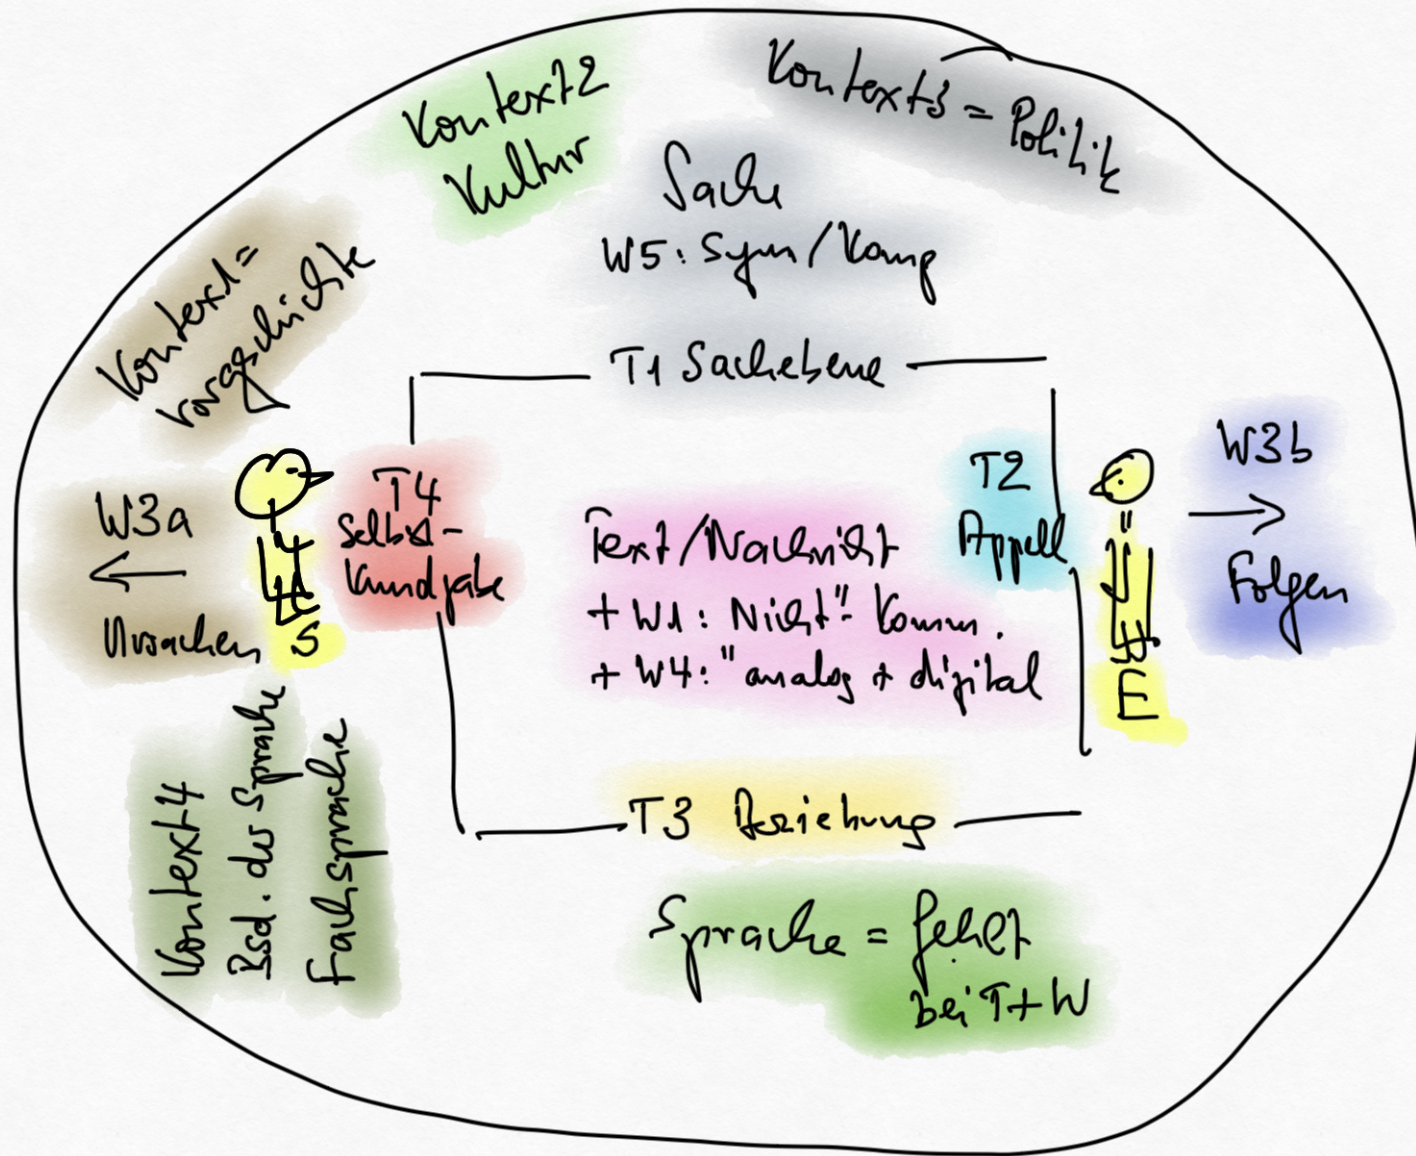 Kontext2
Kultur
Kontext3 = Politik
Sache
W5: Sym/Komp
Kontext1=
Vorgeschichte
T1 Sachebene
W3a
Ursachen
S
T4
Selbst-
Kundgabe
Text/Nachricht
+ W1: Nicht"- Komm.
+ W4: "analog + digital
T2
Appell
E
W3b
Folgen
T3 Beziehung
Kontext4
Bsd. der Sprache
Fachsprache
Sprache = fehlt
bei T+W